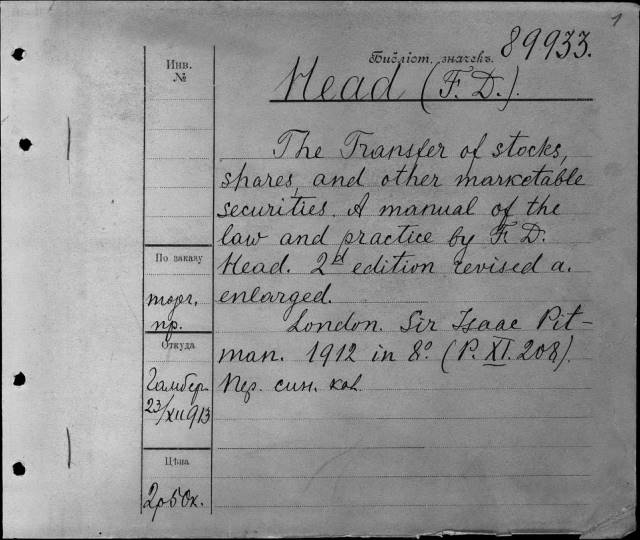 1
89933.
Библіот. значекъ.
Head (F. D.).
The Transfer of stocks,
shares, and other marketable
securities. A manual of the
law and practice by F. D.
Head. 2d edition revised a.
enlarged.
London. Sir Isaac Pit-
man. 1912 in 8º. (P. XI. 208).
Пер. син. кол.
Инв.
№
По заказу
торг.
пр.
Откуда
Гамбер
23/XII 913
Цѣна
2р50к.